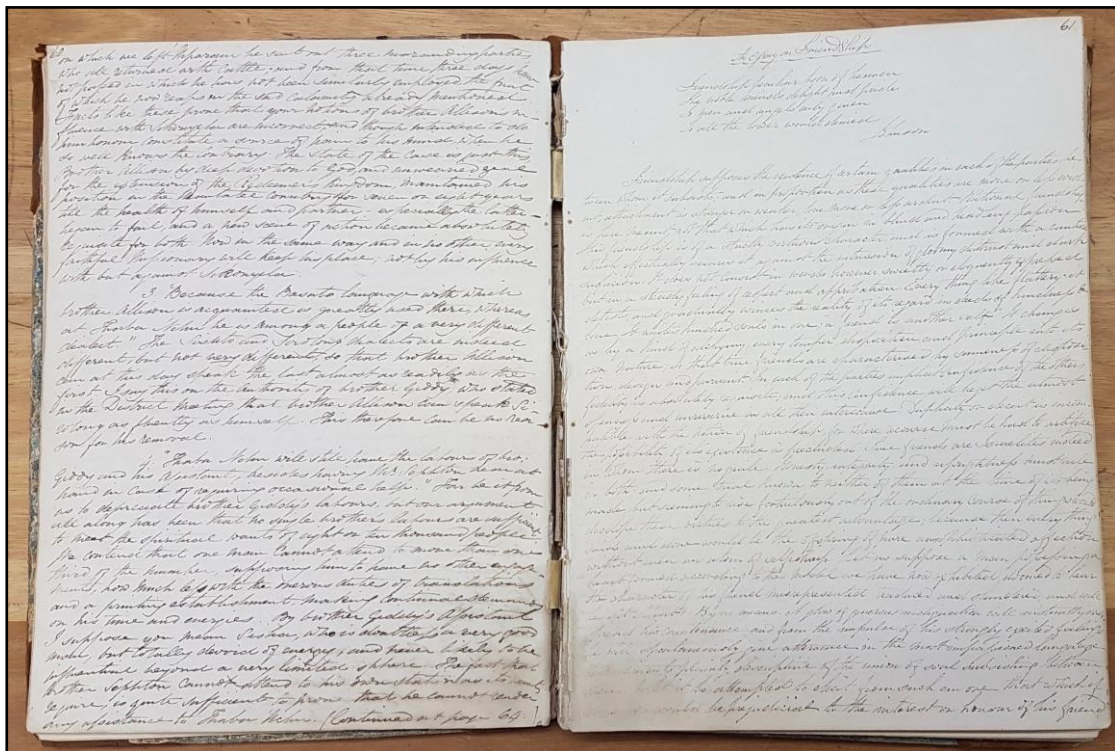 60
on which we left Mparani he sent out three marauding parties
who all returned with cattle; and from that time three days have
not passed in which he have not been similarly employed the fruit
of which he now reaps in the sad calamity already mentioned
Facts like these prove that your notion of brother Allison's in-
fluence with Sikonyela are incorrect, and though intended to do
him honour constitute a source of pain to his mind, when he
so well knows the contrary. The state of the case is just this
Brother Allison by deep devotion to God, and unwearied zeal
for the extension of the Redeemer's kingdom, maintained his
position in the Mantatee country for seven or eight years
till the health of himself and partner, especially the latter
began to fail, and a new scene of action became absolutely
requisite for both. Now in the same way and in no other, every
faithful Missionary will keep his place; not by his influence
with but against Sikonyela.
3. Because the Basuto language with which
brother Allison is acquainted is greatly used there, whereas
at Thaba Nchu he is among a people of a very different
dialect." The Sisuto and Sirolong dialects are indeed
different, but not very different, so that brother Allison
can at this day speak the last almost as readily as the
first. I say this on the authority of brother Giddy who stated
in the District Meeting that brother Allison can speak Si-
rolong as fluently as himself. This therefore can be no rea-
son for his removal.
4. "Thaba Nchu will still have the labours of bro.
Giddy and his Assistant, besides having Mr. Sephton near at
hand in case of requiring occasional help." Far be it from
us to depreciate brother Giddy's labours, but our argument
all along has been that no single brother's labours are sufficient
to meet the spiritual wants of eight or ten thousand people.
We contend that one man cannot attend to more than one
third of the number, supposing him to have no other engage-
ments, how much less with the onerous duties of translations
and a printing establishment, making continual demands
on his time and energies. By brother Giddy's Assistant
I suppose you mean Sashu, who is doubtless a very good
man, but totally devoid of energy, and never likely to be
influential beyond a very limited sphere. The fact that
brother Sephton cannot attend to his own station as it
require, is quite sufficient to prove that he cannot render
any assistance to Thaba Nchu. (Continued at page 64.)
61
An Essay on Friendship
Friendship peculiar boon of heaven
The noble minds delight and pride
To men and angels only given
To all the lower world denied
Johnson
Friendship supposes the existence of certain qualities in each of the parties be-
tween whom it subsists, and in proportion as these qualities are more or less virtuous
the attachment is stronger or weaker, one more or less prudent. Rational friendship
is the reverse of all that which has its origin in blind and headlong passion
This friendship is of a strictly virtuous character and is formed with a caution
which effectually secures it against the intrusion of gloomy distrust and dark
suspicion. It does not consist in words however sweetly or eloquently expressed
but in a steady feeling of respect and approbation. Every thing like flattery it
detests, and gradually evinces the reality of its regard in deeds of kindness &
love. It unites kindred souls in one: a friend is another self. It changes
as by a kind of alchymy every temper disposition and principle into its
own nature, so that true friends are characterised by sameness of
design and pursuit. In each of the parties a perfect confidence of the others
fidelity is absolutely requisite, and this confidence will beget the utmost
openness and unreserve in all their intercourse. Duplicity or deceit is incom-
patible with the notion of friendship for once recourse must be had to
the possibility of its existence is precluded. True friends are Israelites indeed
in whom there is no guile. Honesty integrity and uprightness must
in both, and some trial known to neither of them at the time of its being
made but seeming to rise fortuitously out of the ordinary course of things will
develope these virtues to the greatest advantage, because then every thing
said and done would be the offspring of pure unsophisticated affection
without wear or colour of. Let us suppose a man
formed according to the model we have now exhibited doomed to hear
the character of his friend misrepresented traduced and slandered, and what
is the result? By a sense of generous indignation will
his countenance, and from the impulse of his strongly excited feelings
he will spontaneously give utterance in the most impassioned language
of the union of soul subsisting between
them. Let it be attempted to elicit from such an one that which
would be prejudicial to the interest or honour of his friend